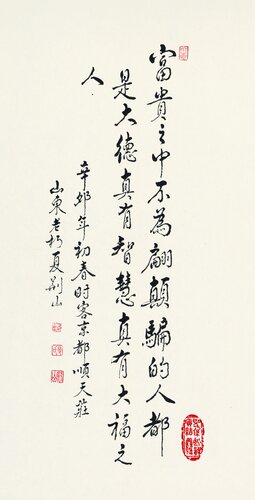 富貴之中不為顛顛騙的人都
是大德真有智慧真有大福之
人
辛卯年初春时客京都順天莊
山東老朽夏荊山